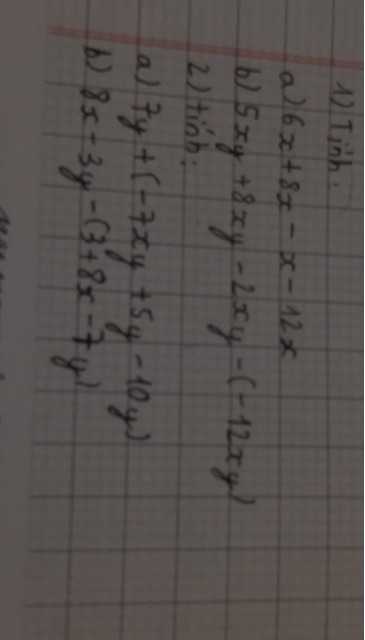 1) Tính:
a) 6x + 8x - x - 12x
b) 5xy + 8xy - 2xy - (-12xy)
2) tính:
a) 7y + (-7xy + 5y - 10y)
b) 8x - 3y - (3 + 8x - 7y)